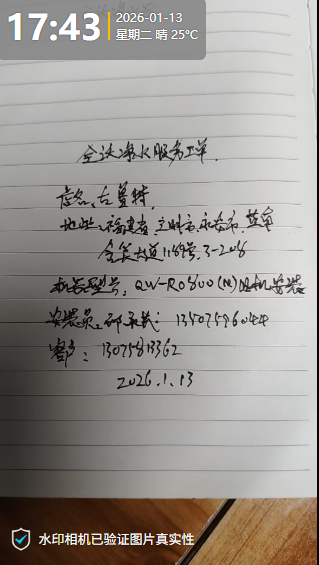 17:43
2026-01-13
星期二 晴 25℃
全沃净水服务工单.
地址: 福建省三明市永安市
大道1189号. 3-208
机器型号: QW-RO800(M) 机安装
安装员: 13507596044
客户: 13075813362
2026.1.13
水印相机已验证图片真实性